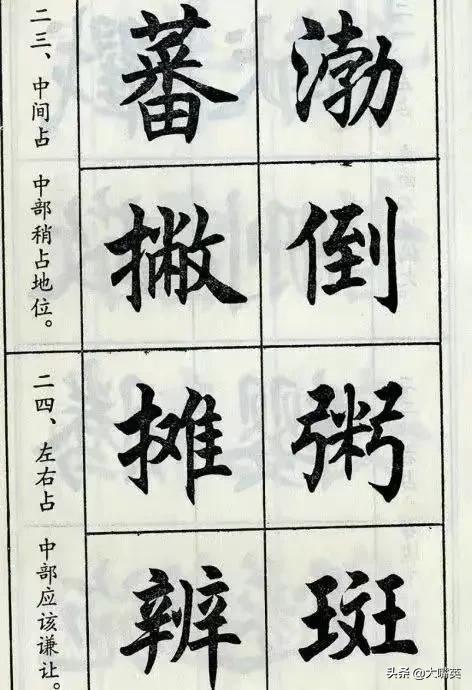 二三、中间占
中部稍占地位。
蕃 渤
撇 倒
二四、左右占
中部应该谦让。
摊 粥
辨 斑
头条 @大嘴英